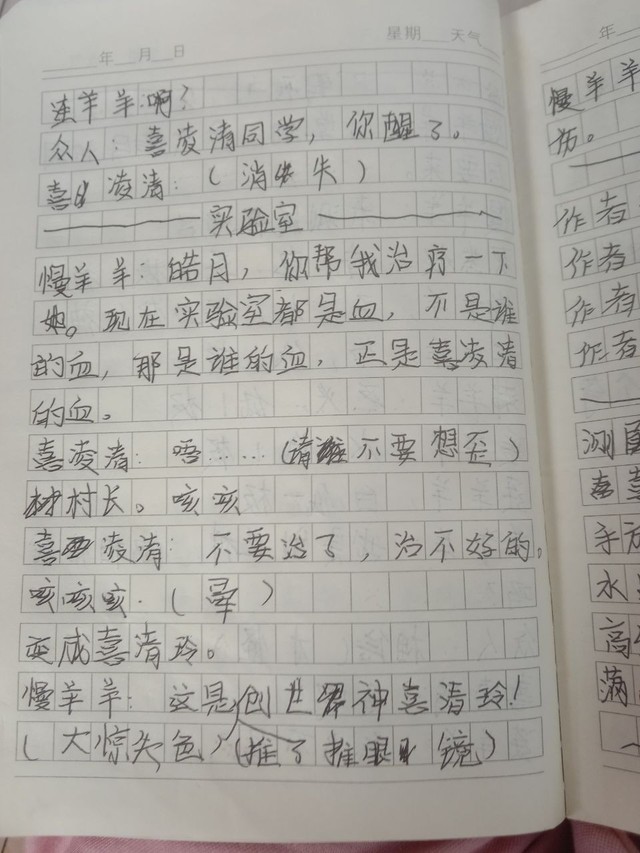 年 月 日 星期 天气
羊羊啊？
众人：喜凌清同学，你醒了。
喜凌清：（消失）
实验室
慢羊羊：皓月，你帮我治疗一下
她。现在实验室都是血，不是谁
的血，那是谁的血，正是喜凌清
的血。
喜凌清：唔……（请不要想歪）
村长。咳咳
喜凌清：不要治了，治不好的。
咳咳咳.（晕）
变成喜清玲。
慢羊羊：这是创世神喜清玲！
（大惊失色）（推了推眼镜）
年
慢羊羊
作者
作者
作者
作者
喜
水
高
满